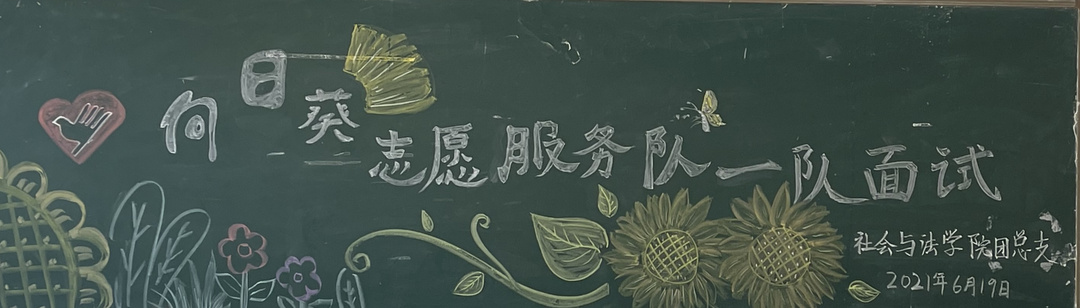 向日葵志愿服务队一队面试
社会与法学院团总支
2021年6月19日